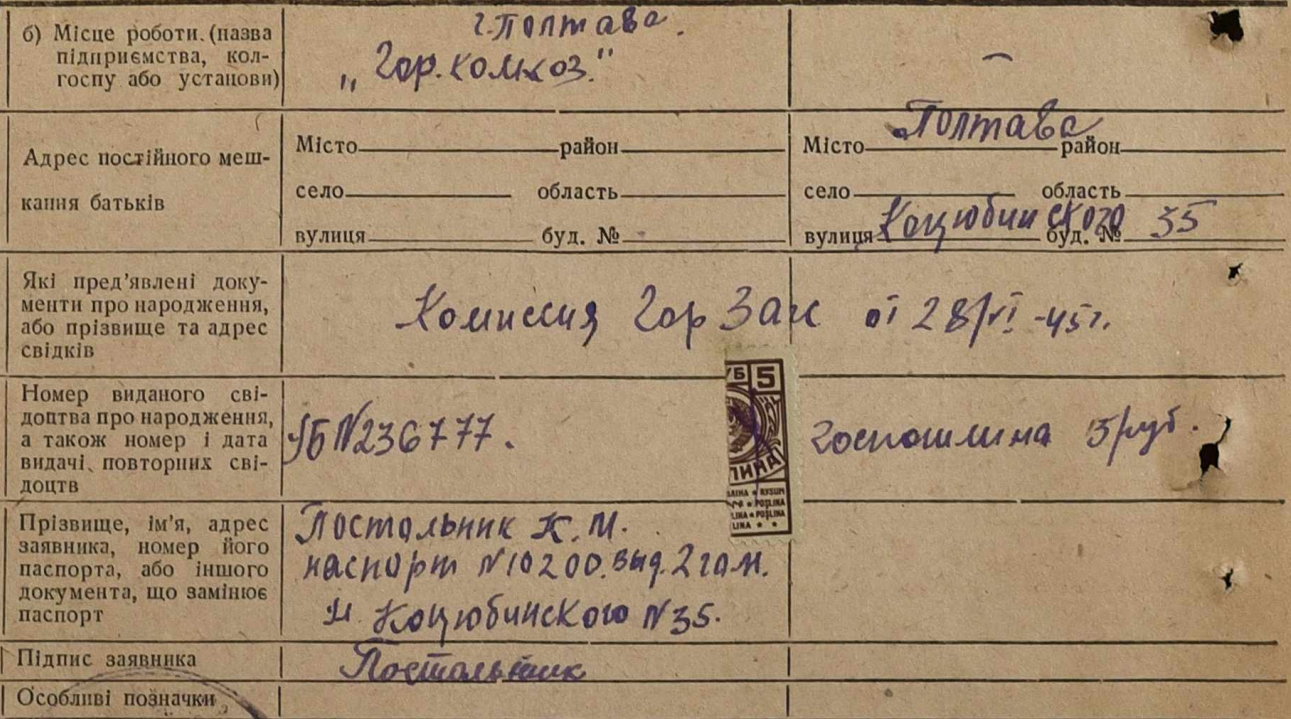 б) Місце роботи (назва
підприємства, кол-
госпу або установи)
г. Полтава.
„Гор.комхоз."
—
Адрес постійного меш-
кання батьків
Місто район
село область
вулиця буд. №
Місто Полтава район
село область
вулиця Коцюбинского буд. № 35
Які пред'явлені доку-
менти про народження,
або прізвище та адрес
свідків
Комиссия Гор Загс от 28/VI-45г.
Номер виданого сві-
доцтва про народження,
а також номер і дата
видачі повторних сві-
доцтв
УБ №236777.
УБ 5
ЛИНА
RYSUM
POŞLINA
LINA POŞLINA
LINA
госпошлина 5руб.
Прізвище, ім'я, адрес
заявника, номер його
паспорта, або іншого
документа, що замінює
паспорт
Постольник К.М.
паспорт №10200. выд. 2 г.о.м.
Коцюбинского №35.
Підпис заявника
Постольник
Особливі позначки